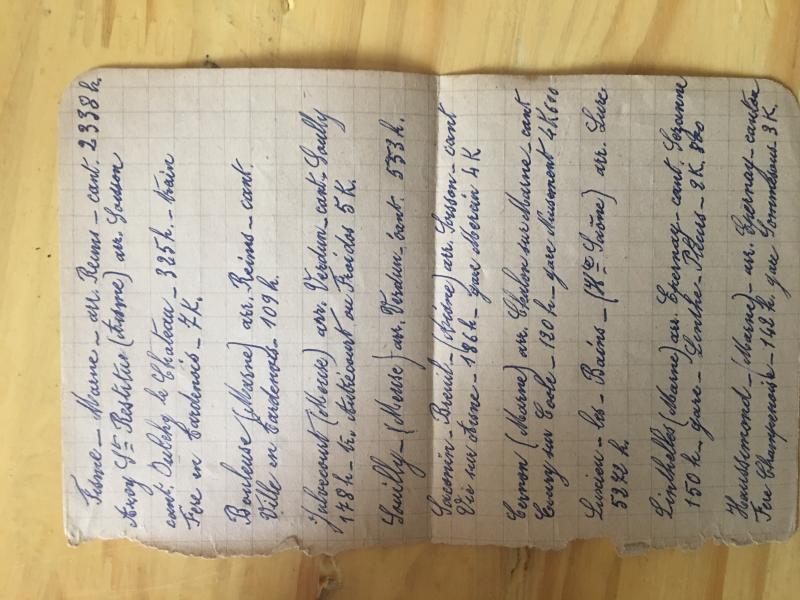 Fisme - Marne - arr. Reims - cant. 2338 h.
Arcy Ste Restitue (Aisne) arr. Soisson
cant. Oulchy le Château - 325 h. - train
Fère en Tardenois - 7 K.
Bouleuse (Marne) arr. Reims - cant.
Ville en Tardenois - 109 h.
Jubécourt (Meuse) arr. Verdun - cant. Souilly
178 h - tr. Aubrécourt ou Froidos 5 K.
Souilly - (Meuse) arr. Verdun cant. 553 h.
Saconin - Breuil - (Aisne) arr. Soisson - cant
Vic sur Aisne - 186 h - gare Mercin 4 K
Cernon (Marne) arr. Chalon sur Marne - cant
Ecury sur Coole - 120 h - gare Nuisement 4 K 600
Luxeuil - les - Bains - (Hte Saône) arr. Lure
5272 h.
Linthelles (Marne) arr. Epernay - cant. Sezanne
150 h - gare - Linthe - Pleurs - 2 K. 800
Haussimond - (Marne) - arr. Epernay - canton
Fère Champenoise - 142 h. gare Sommesous 3 K.